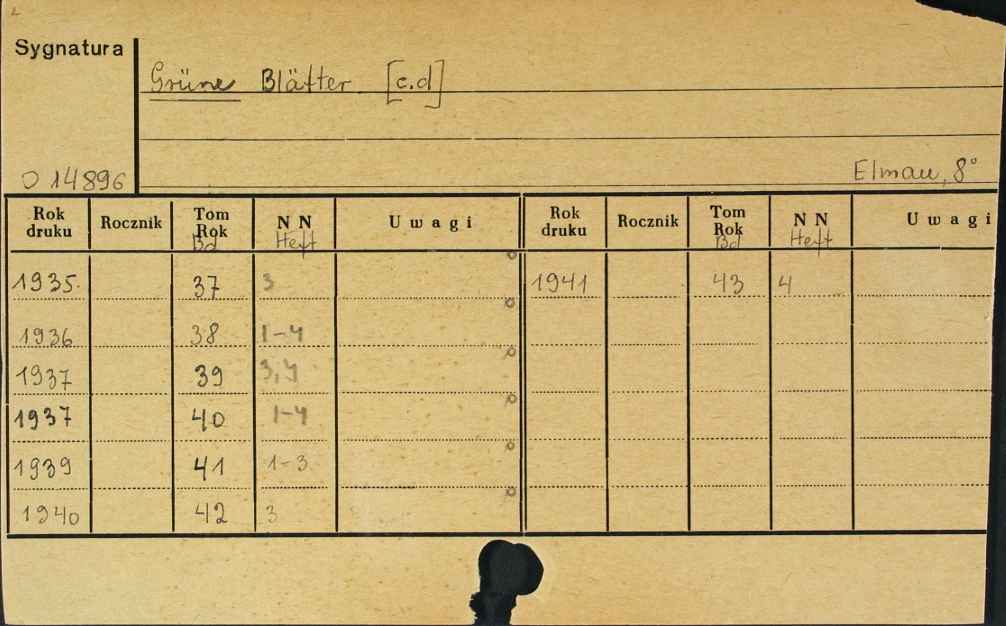 Sygnatura
Grüne Blätter [c.d]
O 14896
Elmau, 8°
Rok druku Rocznik Tom Rok Bd NN Heft Uwagi Rok druku Rocznik Tom Rok Bd NN Heft Uwagi
1935 37 3 1941 43 4
1936 38 1-4
1937 39 3,4
1937 40 1-4
1939 41 1-3
1940 42 3